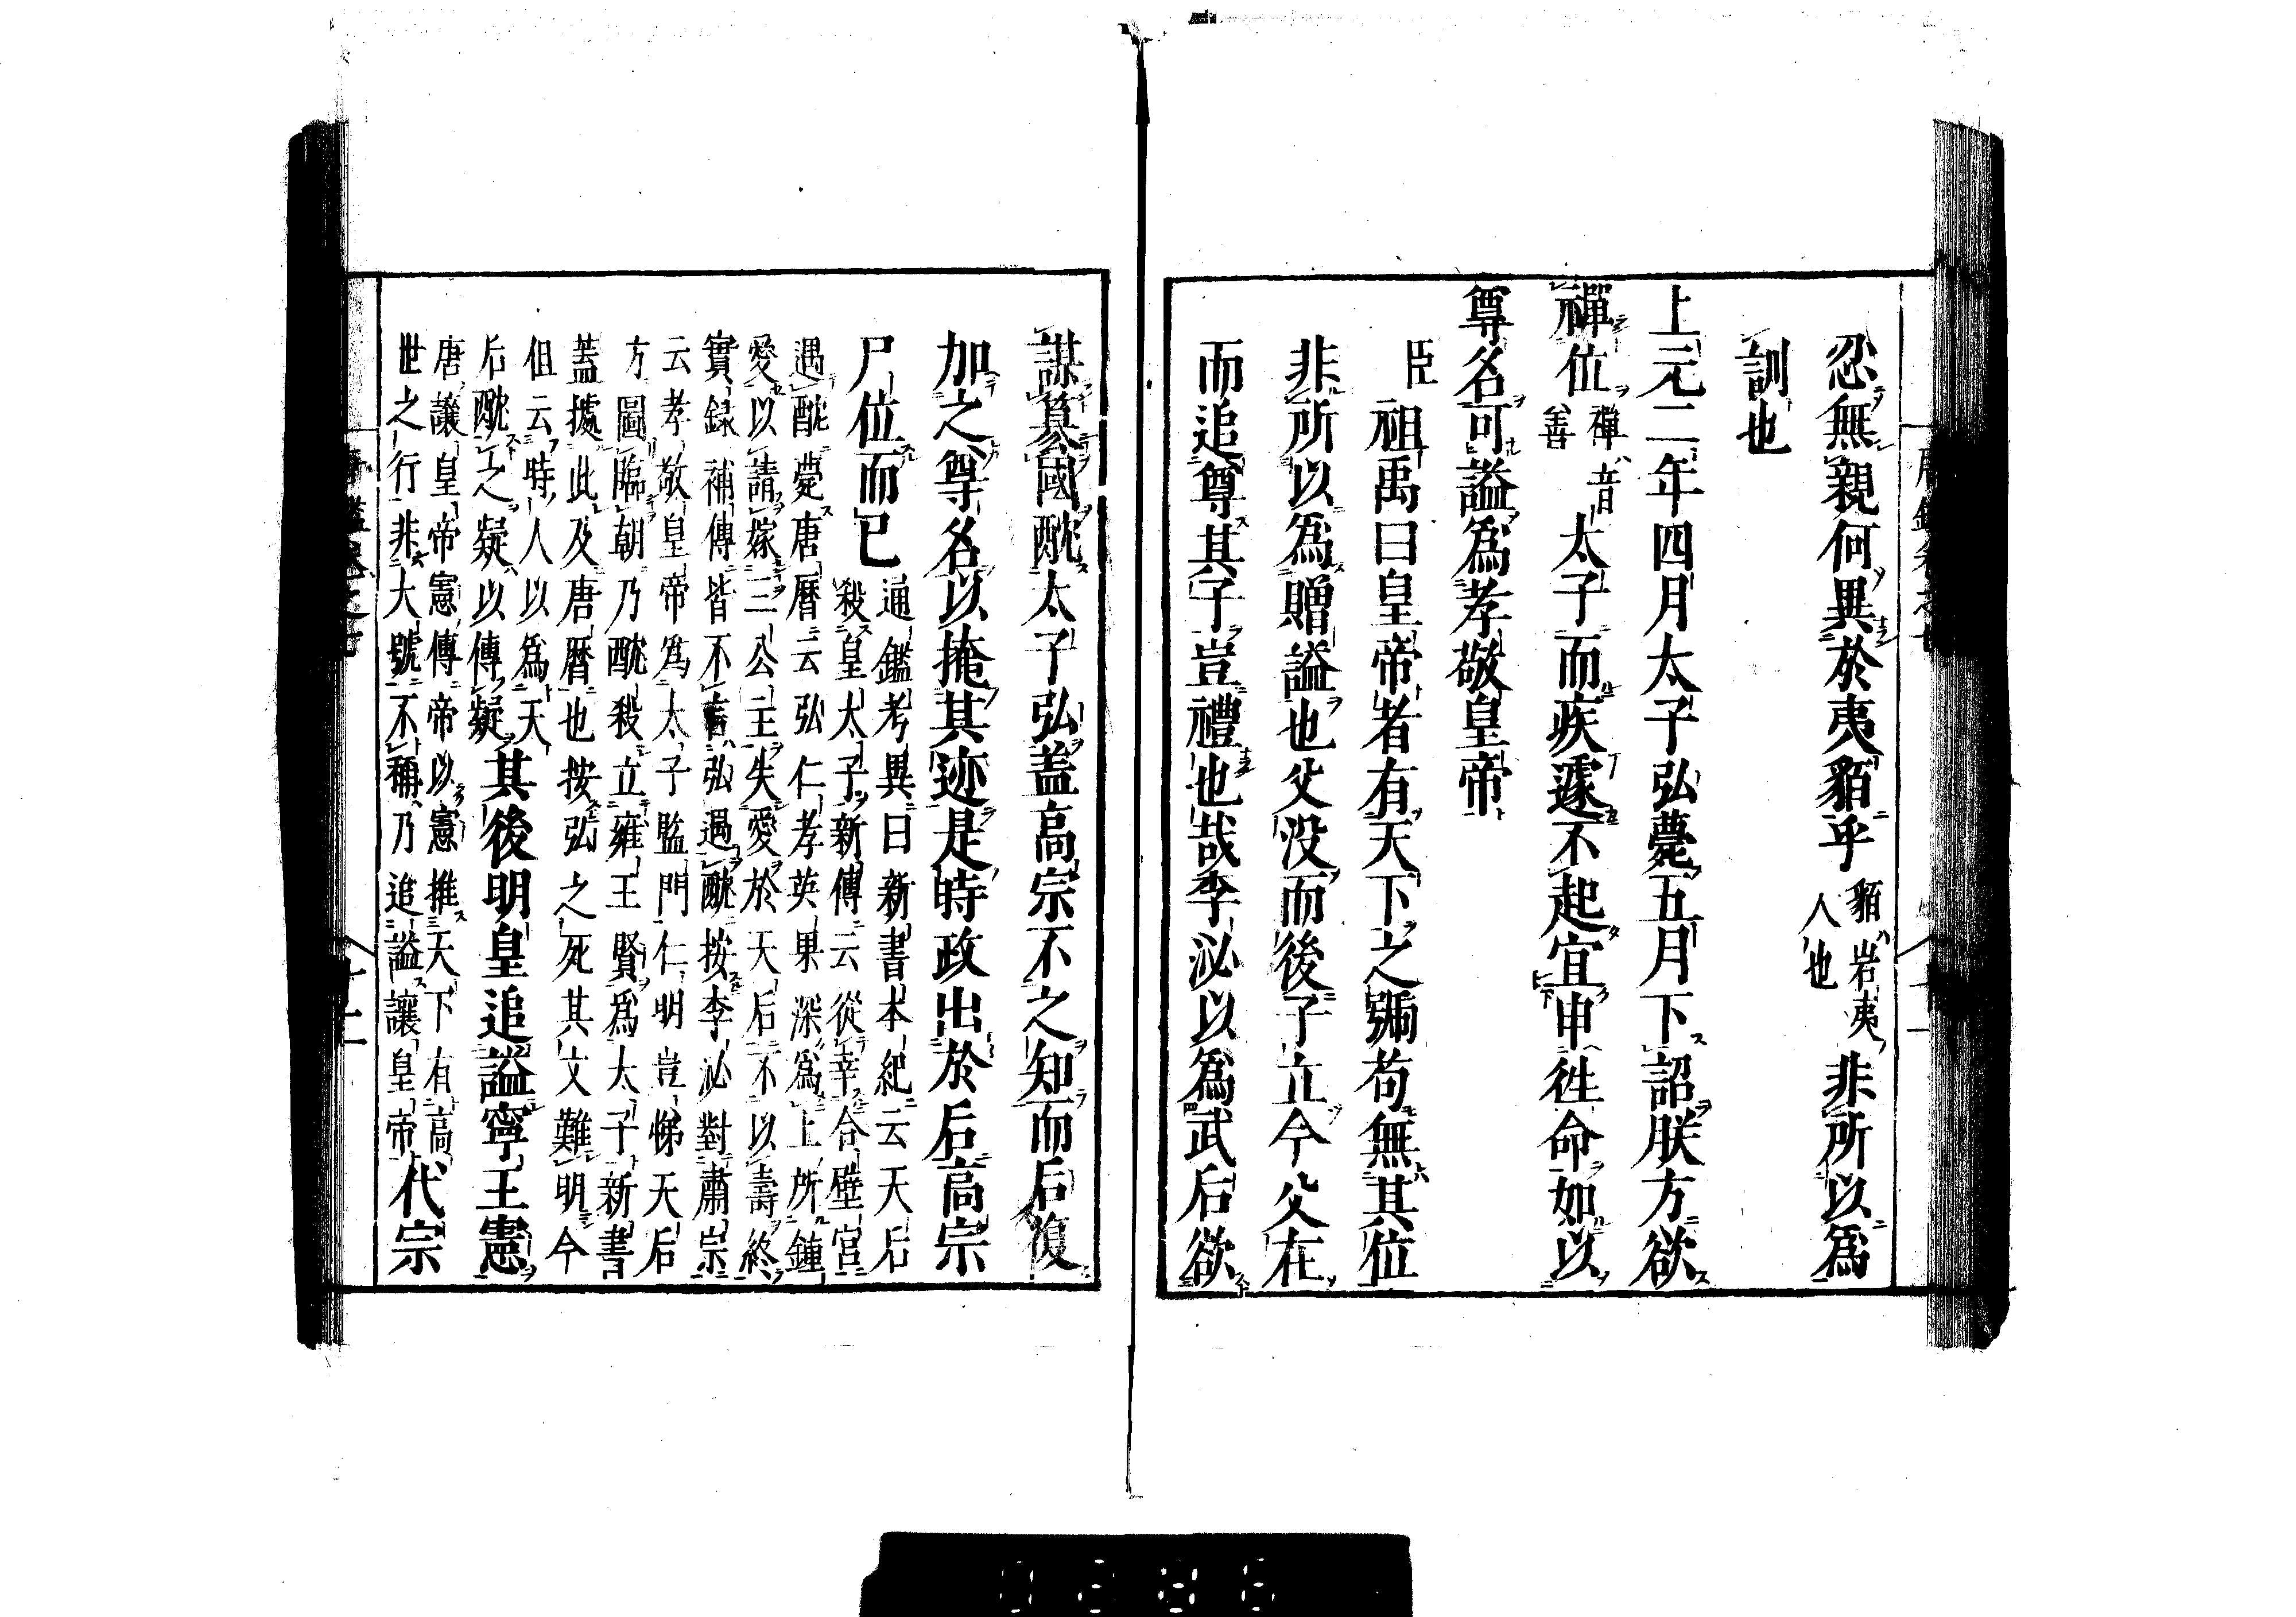 忍無親何異於夷貊乎貊岩夷人也非所以爲
訓也
上元二年四月太子弘薨五月下詔朕方欲
禪位禪音善太子而疾遽不起宜申徃命如以
尊名可謚爲孝敬皇帝
臣祖禹曰皇帝者有天下之號苟無其位
非所以爲贈謚也父没而後子立今父在
而追尊其子豈禮也哉李泌以爲武后欲
謀簒國酖太子弘蓋高宗不之知而后復
加之尊名以掩其迹是時政出於后高宗
尸位而已通鑑考異曰新書本紀云天后
殺皇太子新傳云從幸合璧宮
遇酖薨唐曆云弘仁孝英果深爲上所鍾
愛以請嫁二公主失愛於天后不以壽終
實録補傳皆不言弘遇酖按李泌對肅宗
云孝敬皇帝爲太子監門仁明豈悌天后
方圖臨朝乃酖殺立雍王賢爲太子新書
蓋據此及唐曆也按弘之死其文難明今
但云時人以爲天
后酖之疑以傳疑其後明皇追謚寧王憲
唐讓皇帝憲傳帝以憲推天下有高
世之行非大號不稱乃追謚讓皇帝代宗